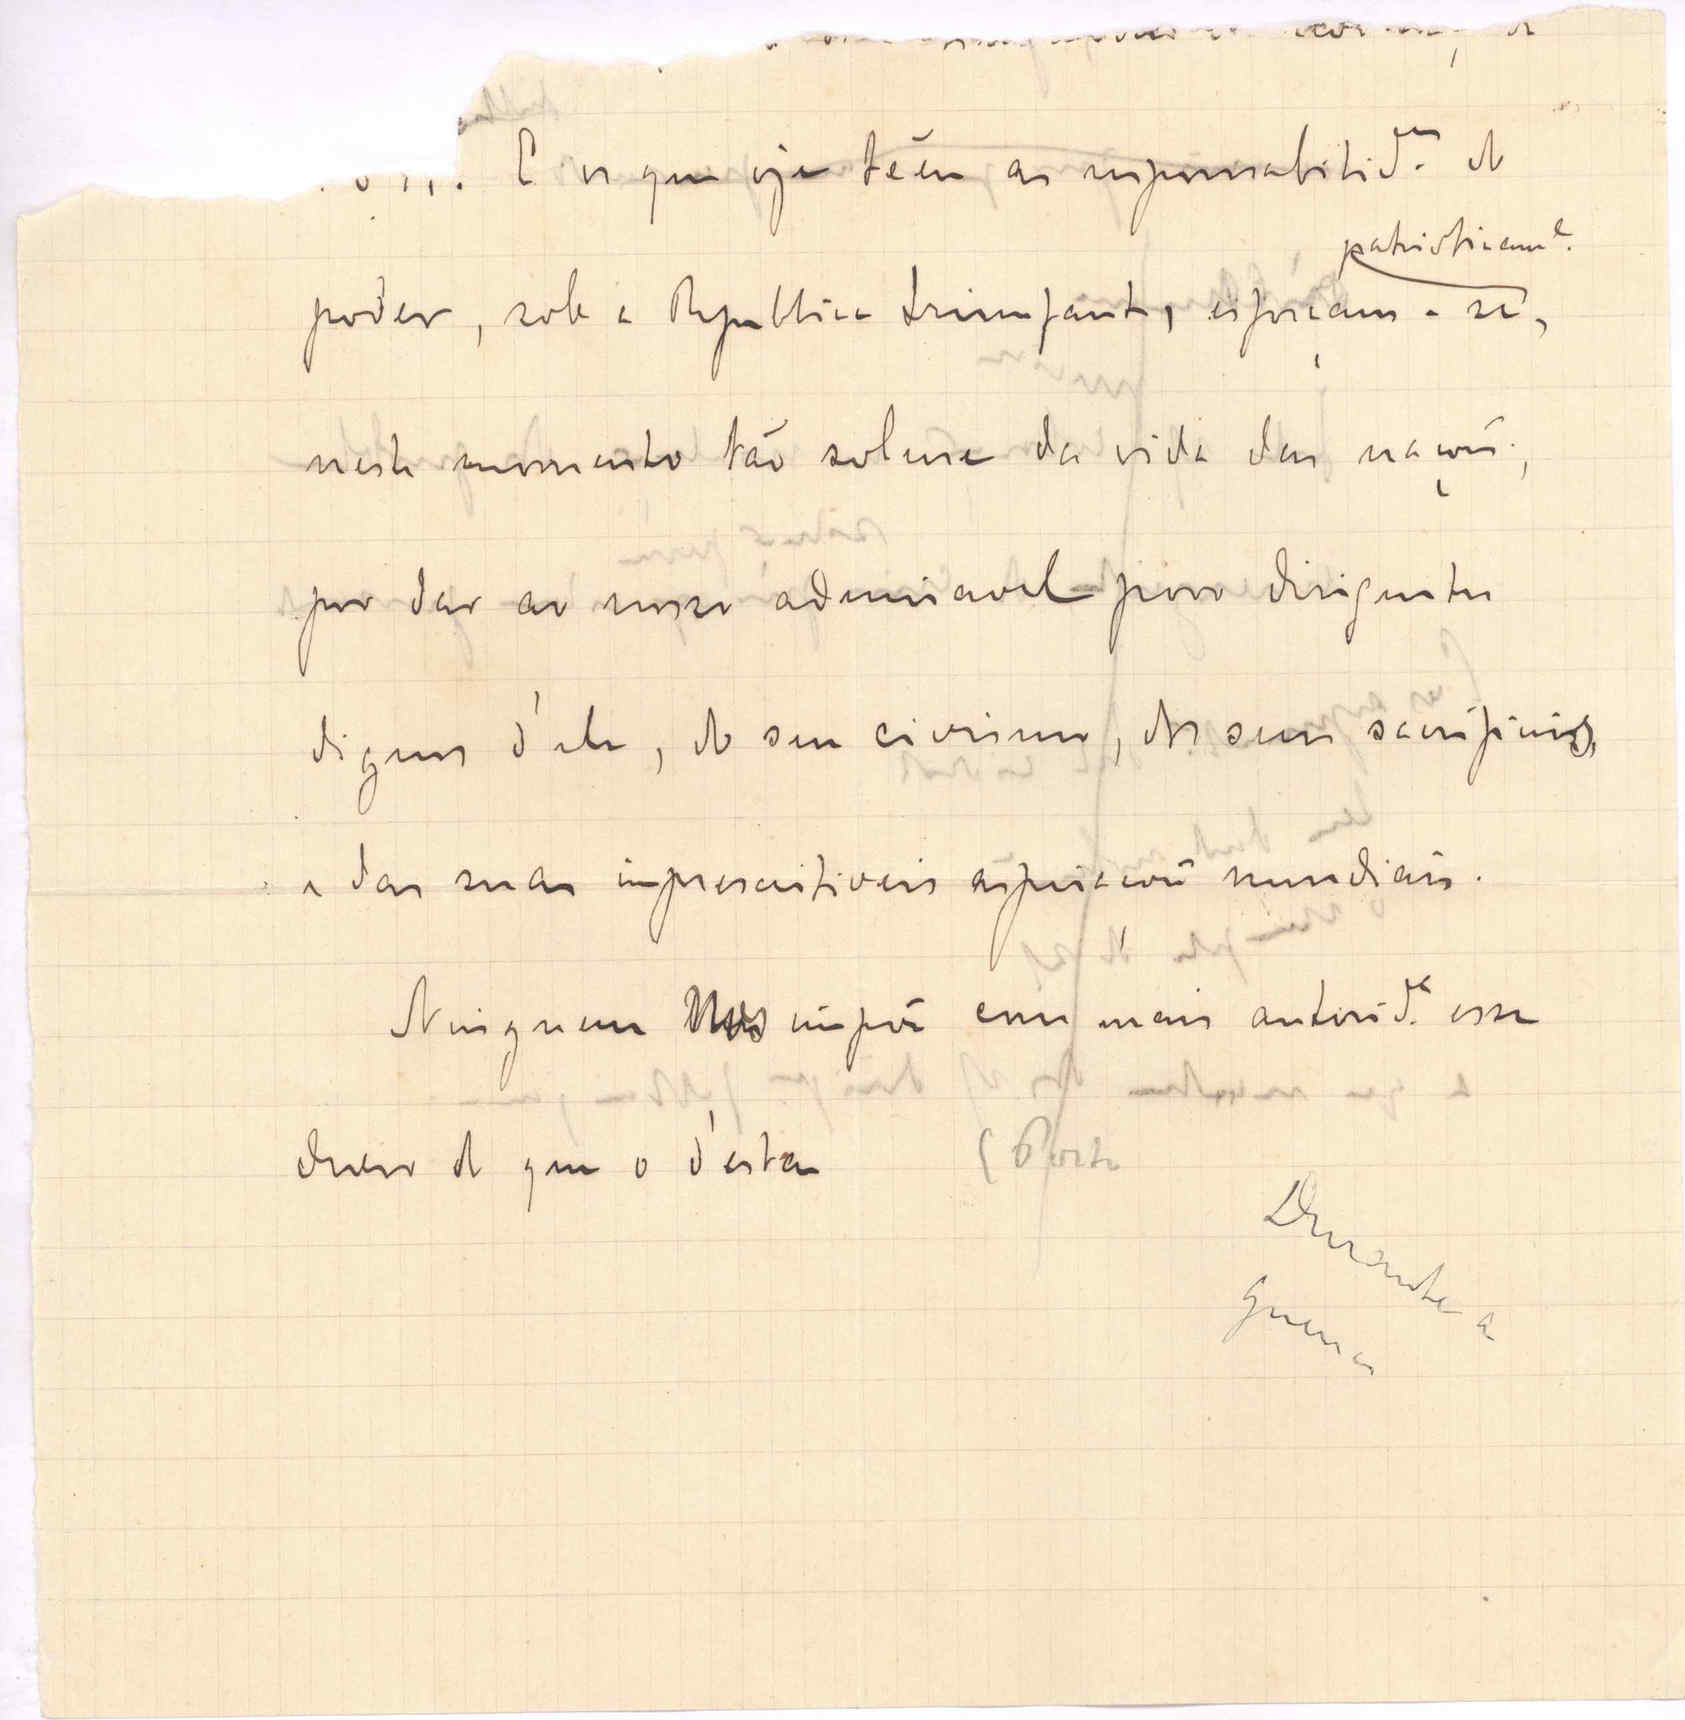 E os que oje téem as responsabilid.es do
patrioticam.e
poder, sob a Republica triumfante, esforçam-se,
neste momento tão solene da vida das nações,
por dar ao nosso admiravel povo dirigentes
dignos d'ele, do seu civismo, dos seus sacrificios,
e das suas imprescritiveis aspirações mundiais.
Ninguem impõe com mais autorid.e esse
dever do que o d'esta
(Porto
Durante a
guerra